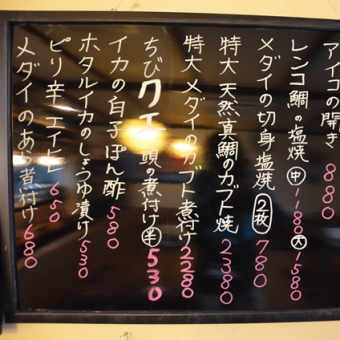 アイコの開き 880
レンコ鯛の塩焼 中 1180 大 1580
メダイの切身塩焼 2枚 780
特大 天然真鯛のカブト焼 2380
特大 メダイのカブト煮付け 2280
ちびクエ 頭の煮付け 半 530
イカの白子ぽん酢 580
ホタルイカのしょうゆ漬け 530
ピリ辛エイヒレ 650
メダイのあら煮付け 680